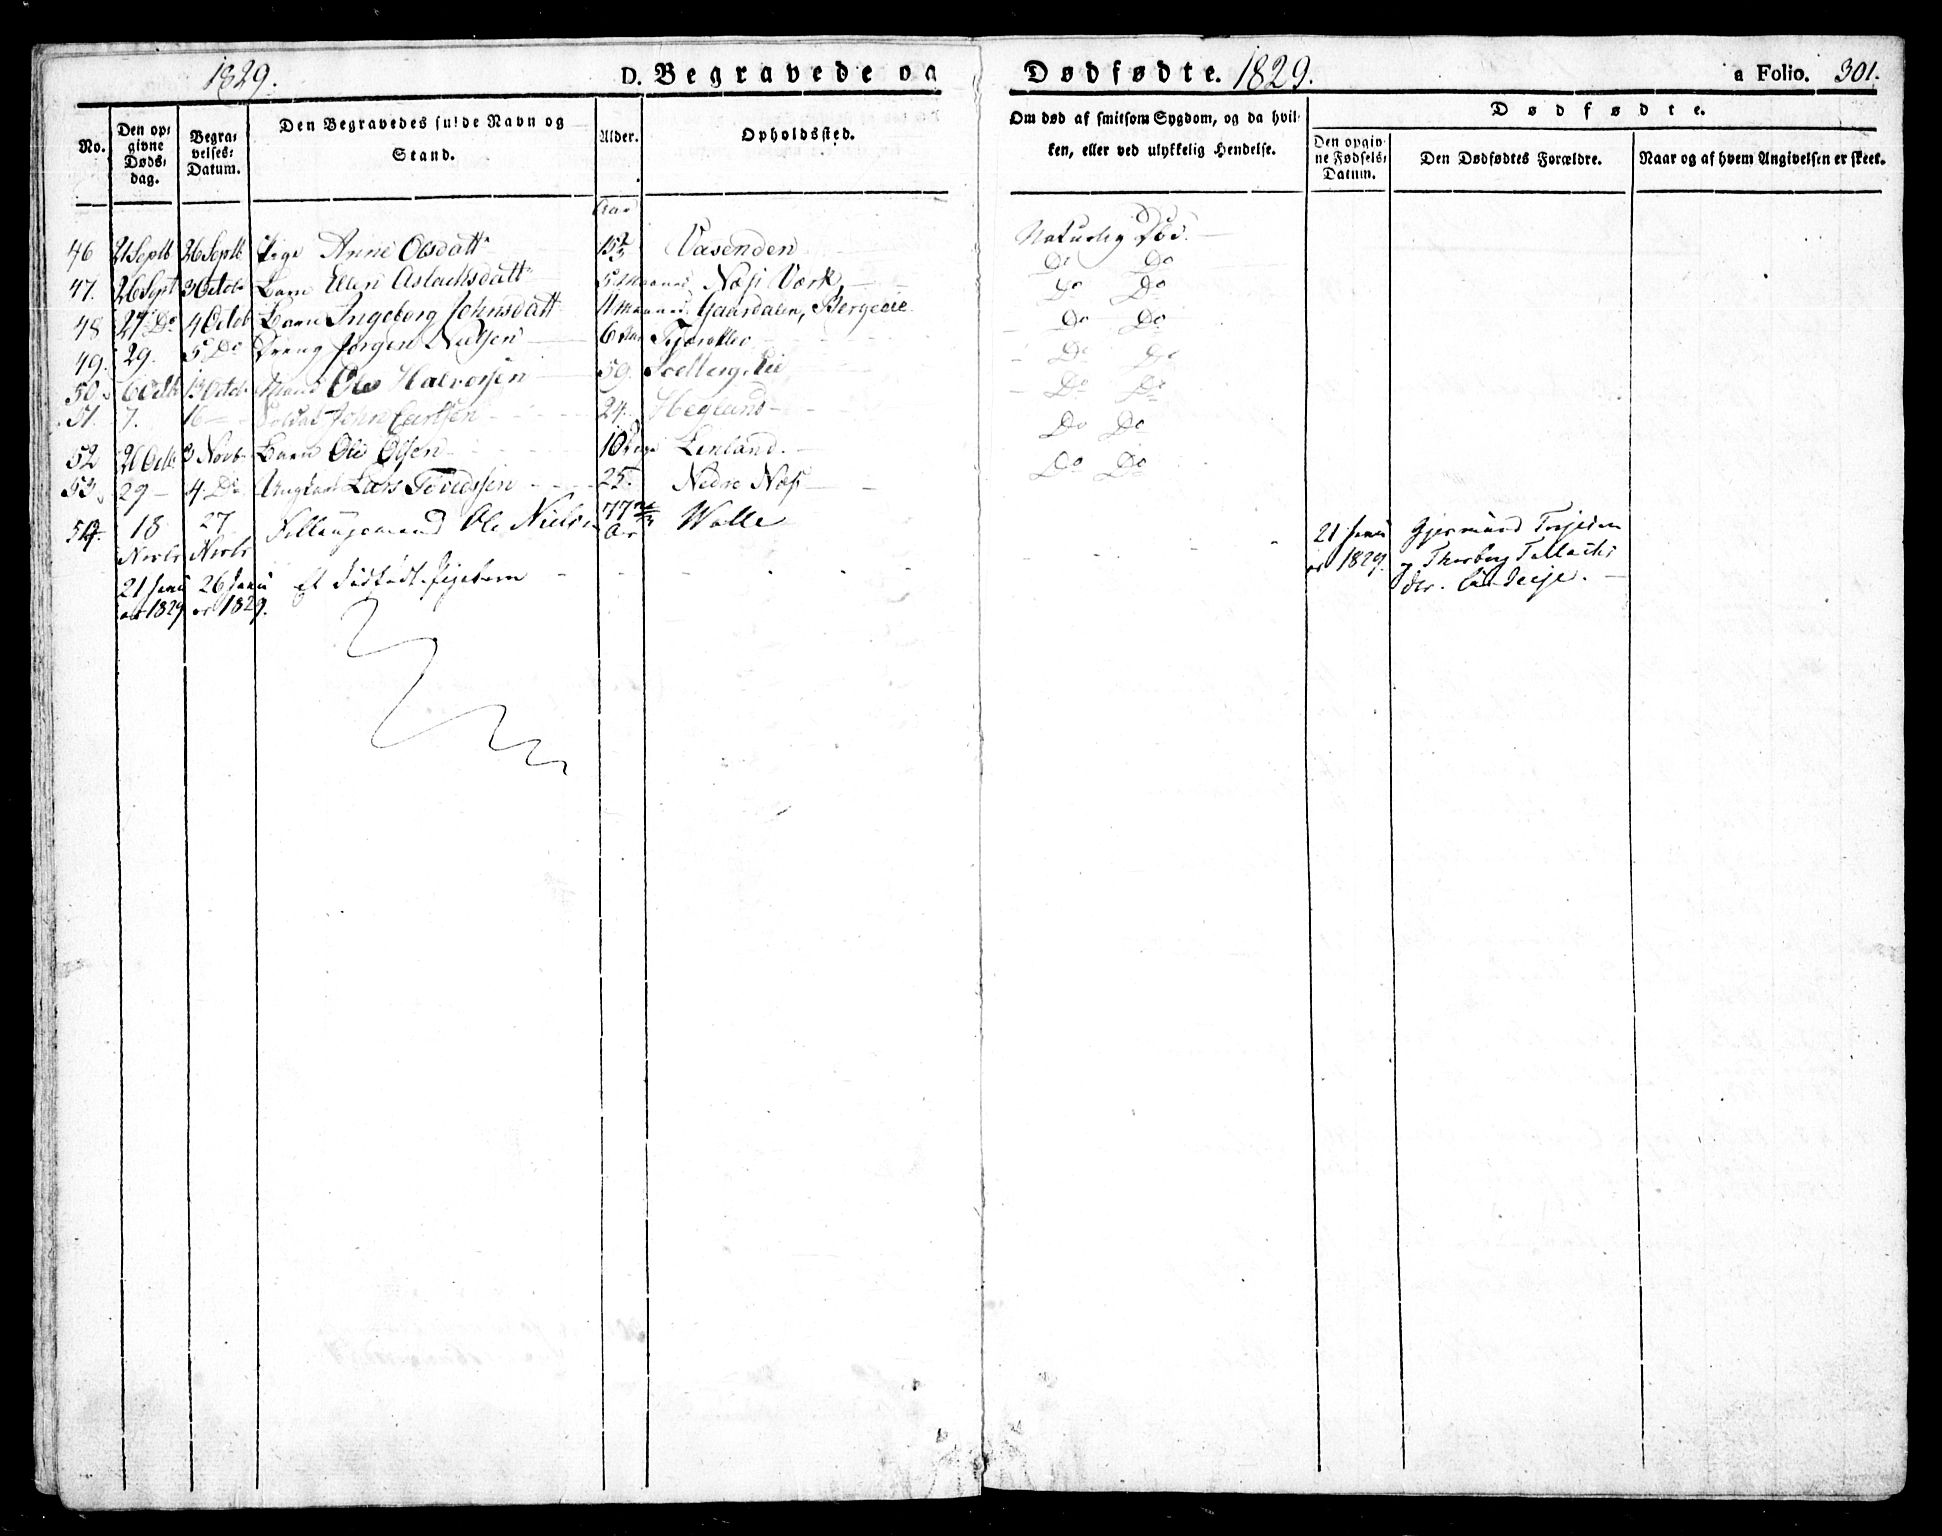 1829. D. Begravede og Dødfødte. 1829. a Folio. 301.
No. Den opgivne Dødsdag. Begravelses-Datum. Den Begravedes fulde Navn og Stand. Alder. Opholdssted. Om død af smitsom Sygdom, og da hvilken, eller ved ulykkelig Hendelse. Dødfødte.
Den opgivne Fødsels-Datum. Den Dødfødtes Forældre. Naar og af hvem Angivelsen er skeet.
Aar
46 21 Septb 26 Septb Pige Anne Olsdatt Vasenden Naturlig Død.
47. 26 Sept 3 Octob Barn Ellen Aslachsdatt 5 Maaned Næss Værk Do Do
48 27 Do 4 Octob Barn Ingeborg Johnsdatt 11 Maaned Gaardalen, Bergeeie Do Do
49. 29. 5 Do Dreng Jørgen Nielsen 6 Do Do
50. 6 Octb 13 Octob Mand Ole Halvorsen 59. Do Do
51. 7. 16 Soldat John Larssen 24. Hegland Do Do
52 26 Octb 3 Novb Barn Ole Olsen 10 Lenland. Do Do
53. 29 4 Do Ungkarl Lars Tovedssen 25. Nedre Næss Do Do
54. 18 Novbr 27 Novbr Ole Nielsen 77 Ar Walle
21 Janu ar 1829 26 Janu ar 1829. Et dødfødt Pigebarn 21 Janu ar 1829. Gjermund Terjesen
og Thorborg Tellachs
dtr.